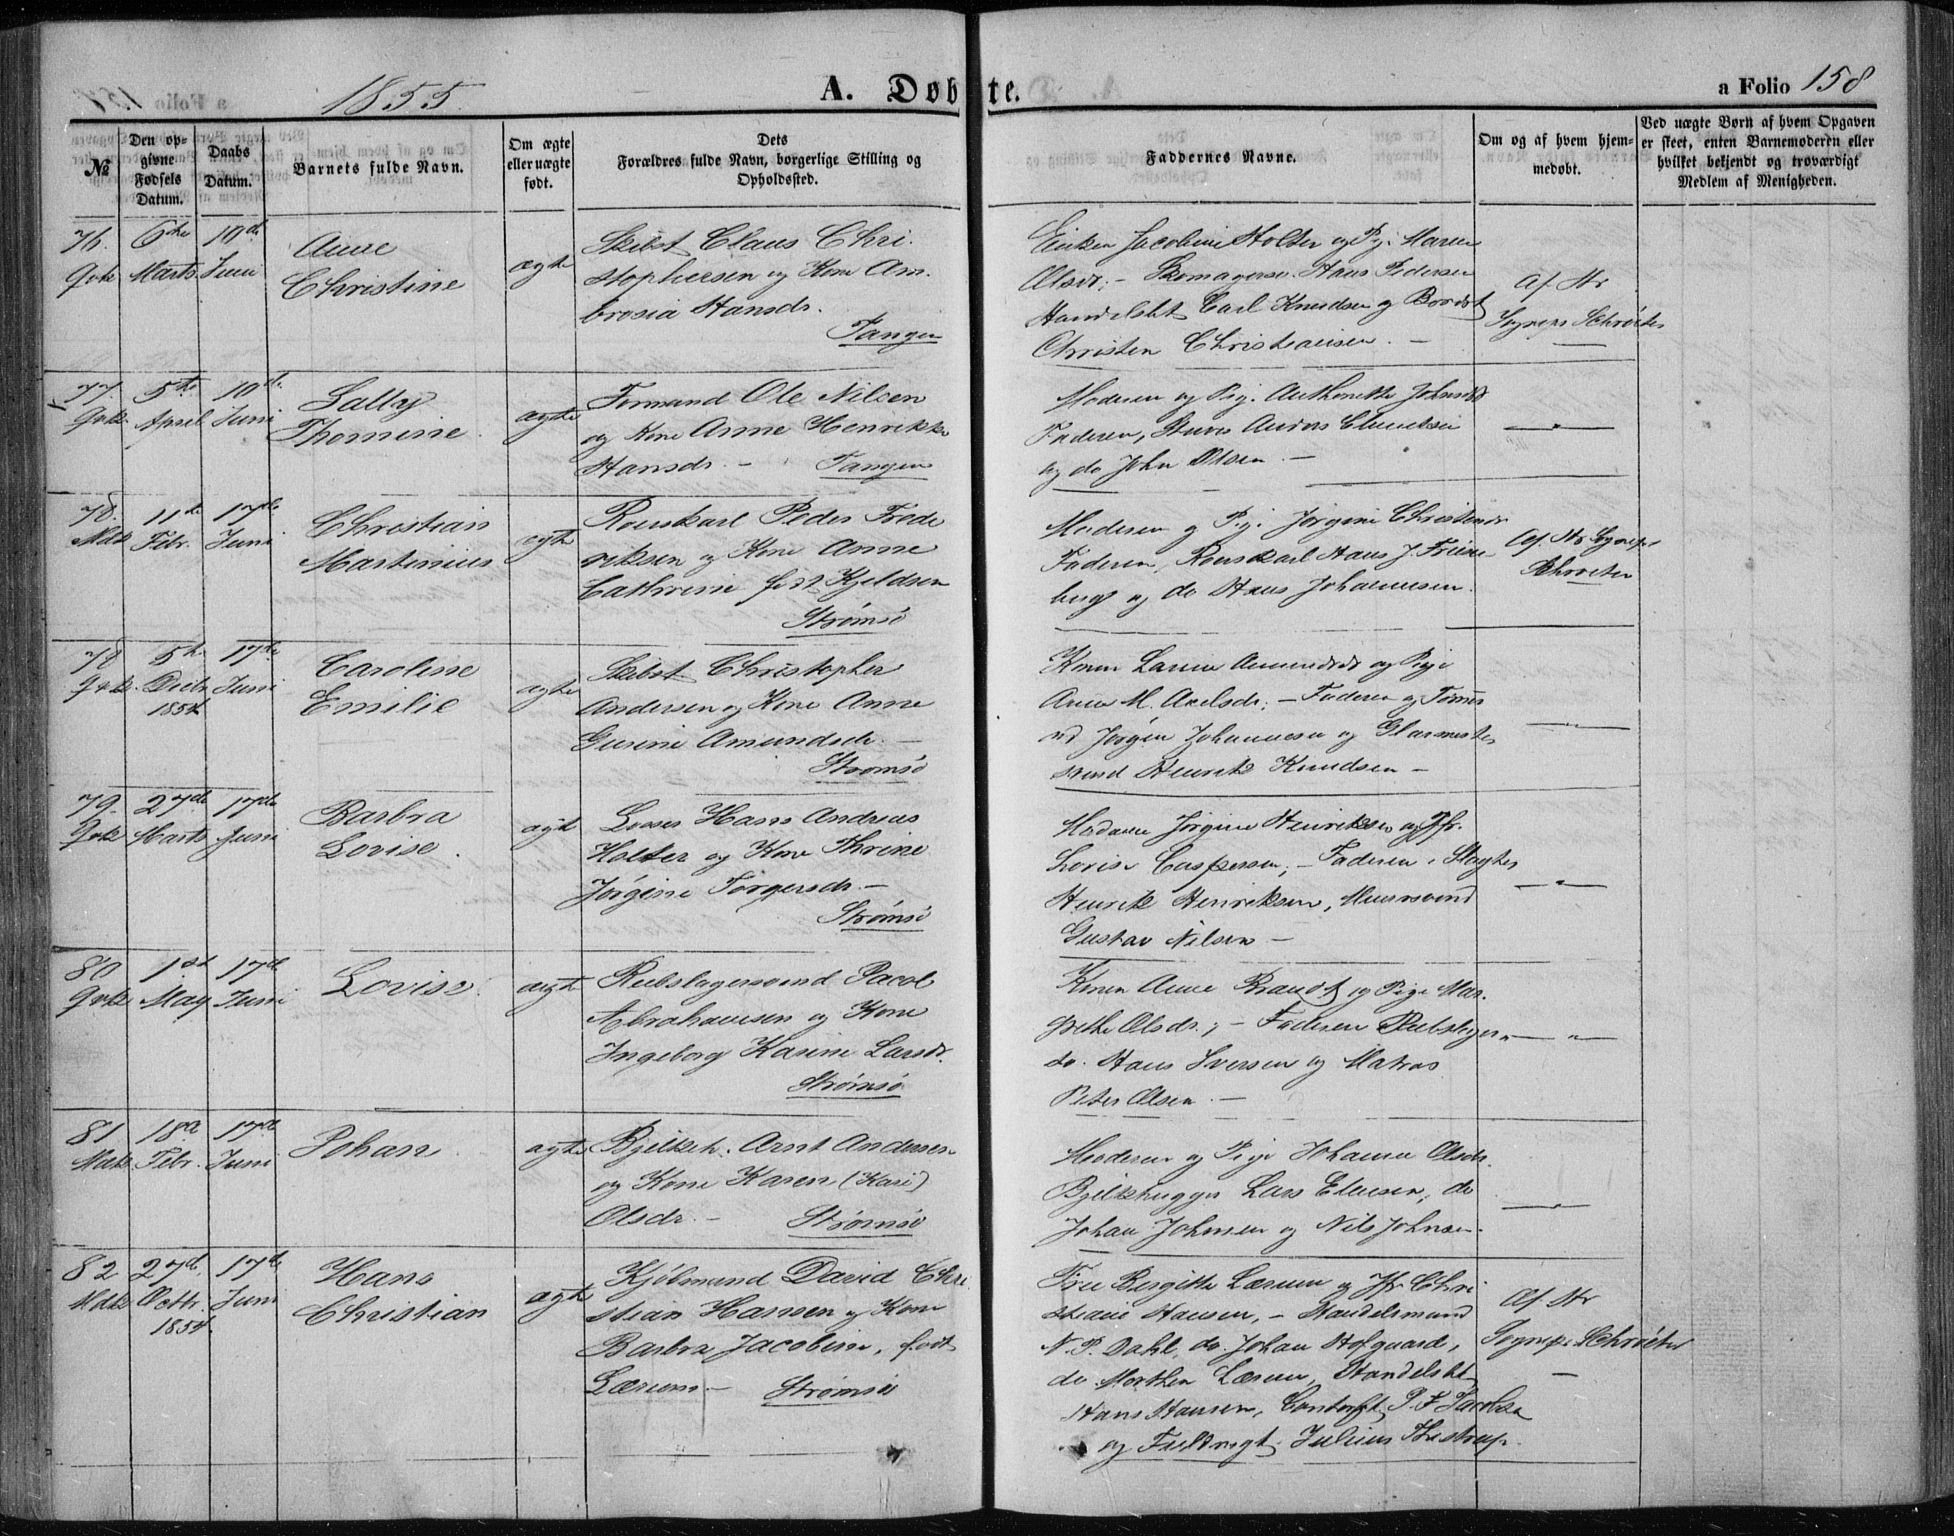 1855.
A. Døbte.
a Folio 158
№
Den opgivne Fødsels Datum.
Daabs Datum.
Barnets fulde Navn.
Om ægte eller uægte født.
Dets
Forældres fulde Navn, borgerlige Stilling og
Opholdssted.
Faddernes Navne.
Om og af hvem hjemmedøbt.
Ved uægte Børn af hvem Opgaven
er skeet, enten Barnemoderen eller
hvilket bekjendt og troværdigt
Medlem af Menigheden.
76. 6te 10de
Marts Juni
Anne
Christine
ægte
Skibst. Claus Chri-
stophersen og Kone Am-
brosia Hansdr.
Tangen
Enken Jacobine Holter og Pige Maren
Olsdr; - Skomagersv. Hans Pedersen
Handelsbt Carl Knudsen og
Christen Christiansen. -
Af Hr
Sognepr Schrøeter
77. 5te 10de
April Juni
Sally
Thomine
ægte
Tømmand Ole Nilsen
og Kone Anne Henrikke
Hansdr. - Tangen
Moderen og Pig. Anthonette Johnsdr
Faderen, Anders
og do John Olsen -
78. 11te 17de
Febr. Juni
Christian
Martinius
ægte
Roerskarl Peder Frede
riksen og Kone Anne
Cathrine født Kjeldsen
Strømsø
Moderen og Pige Jørgine Christensdr
Faderen, Roerskarl Hans J.
berg og do Hans Johannesen.
Af Hr Sognepr
Schroeter
78 5te 17de
Decbr. Juni
1854
Caroline
Emilie
ægte
Skibst. Christopher
Andersen og Kone Anne
Gurine Amundsdr. -
Strømsø
Konen Amundsdr og Pige
Anne M. Axelsdr; - Faderen og Tømm
Jørgen Johannesen og Glarmester
svend Henrik Knudsen -
79. 27de 17de
Marts Juni
Barbra
Lovise.
ægte
Hans Andreas
Holter og Kone Thrine
Jørgine Torgersdr. -
Strømsø
Madame Jørgine Henriksen og Jfr.
Lovise Caspersen; - Faderen, Slagter
Henrik Henriksen, Muursvend
Gustav Nilsen -
80 1st 17de
May Juni
Lovise.
ægte
Rebslagersvend Jacob
Abrahamsen og Kone
Ingeborg Karine Larsdr.
Strømsø
Konen Anne Brandt og Pige Mar-
grethe Olsdr; - Faderen Rebslager
do. Hans Iversen og Matros
Peter Olsen. -
81 18de 17de
Febr. Juni
Johan
ægte
Bjelkeh. Arnt Andersen
og Kone Karen (Kari)
Olsdr. - Strømsø
Moderen og Pige Johanne Olsdr.
Bjelkhugger Lars Ellensen, do
Johan Johnsen og Nils Johnsen.
82 27de 17de
Octbr. Juni
1854.
Hans
Christian
ægte
Kjøbmand David Chri
stian Hansen og Kone
Barbra Jacobine, født
Lærum - Strømsø
Frue Bergitte Lærum og Jfr Chri
stiane Hansen, - Handelsmand
N. P. Dahl, do. Johan Hofgaard,
do. Morthen Lærum, Handelsbt
Hans Hansen, P. F. Jacobsen
og Fuldmegt. Julius Thostrup.
Af Hr
Sognepr. Schrøeter